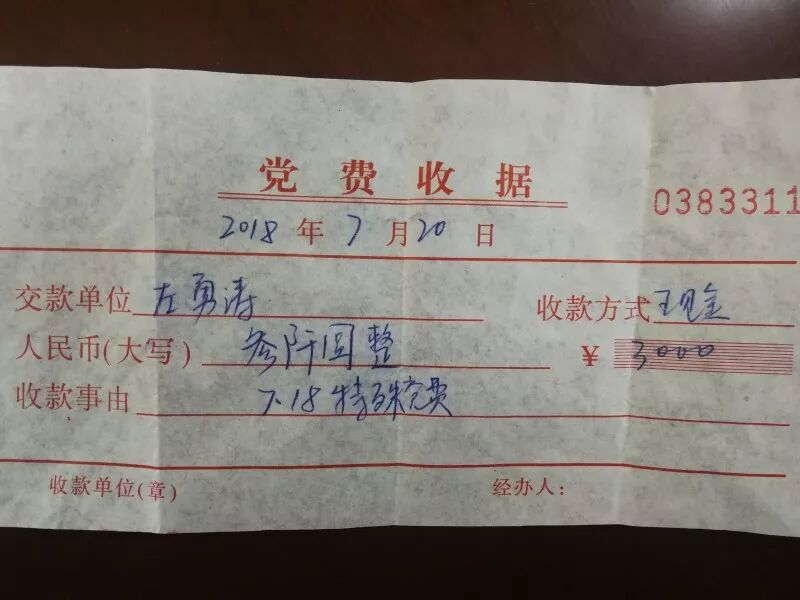 党费收据
0383311
2018年7月20日
交款单位 左勇涛 收款方式 现金
人民币(大写) 叁阡圆整 ¥ 3000
收款事由 7.18特殊党费
收款单位(章) 经办人: